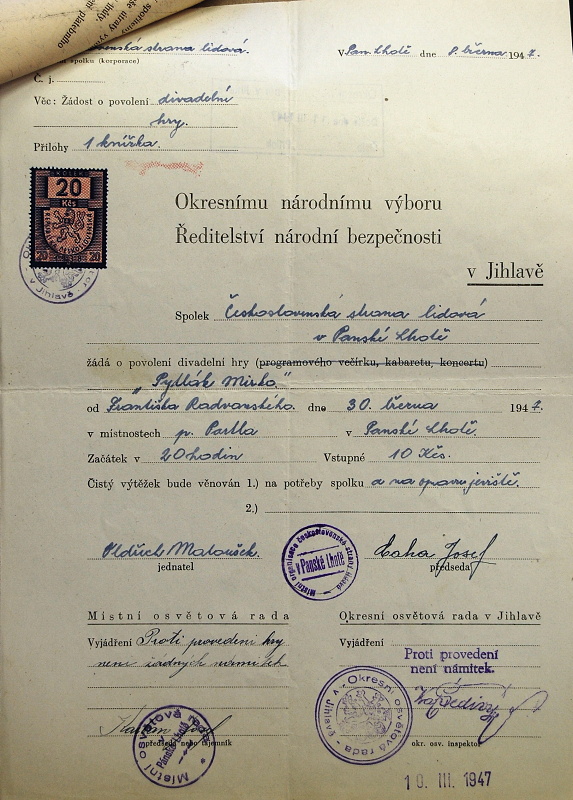 spořitelny
lhůty,
do utraty
platebního
Československá strana lidová.
spolku (korporace)
V Pan. Lhotě dne 8. března 1947.
Č. j.
Věc: Žádost o povolení divadelní
hry.
Přílohy 1 knížka.
KOLEK
20
Kčs
REPUBLIKA ČESKOSLOVENSKÁ
20 20
v Jihlavě
Okresnímu národnímu výboru
Ředitelství národní bezpečnosti
v Jihlavě
Spolek Československá strana lidová
v Panské Lhotě
žádá o povolení divadelní hry (programového večírku, kabaretu, koncertu)
„Pytlák Mirko"
od Františka Radvanského. dne 30. března 1947.
v místnostech p. Partla v Panské Lhotě.
Začátek v 20 hodin Vstupné 10 Kčs.
Čistý výtěžek bude věnován 1.) na potřeby spolku a na opravu jeviště.
2.)
Oldřich Matoušek
Místní organisace československé strany lidové
v Panské Lhotě
Josef
jednatel
předseda
Místní osvětová rada
Okresní osvětová rada v Jihlavě
Vyjádření Proti provedení hry
není žádných námitek
Vyjádření
Proti provedení
není námitek.
Místní osvětová rada
Panské Lhotě
předseda nebo tajemník
Okresní osvětová rada
v Jihlavě
okr. osv. inspektor
10. III. 1947